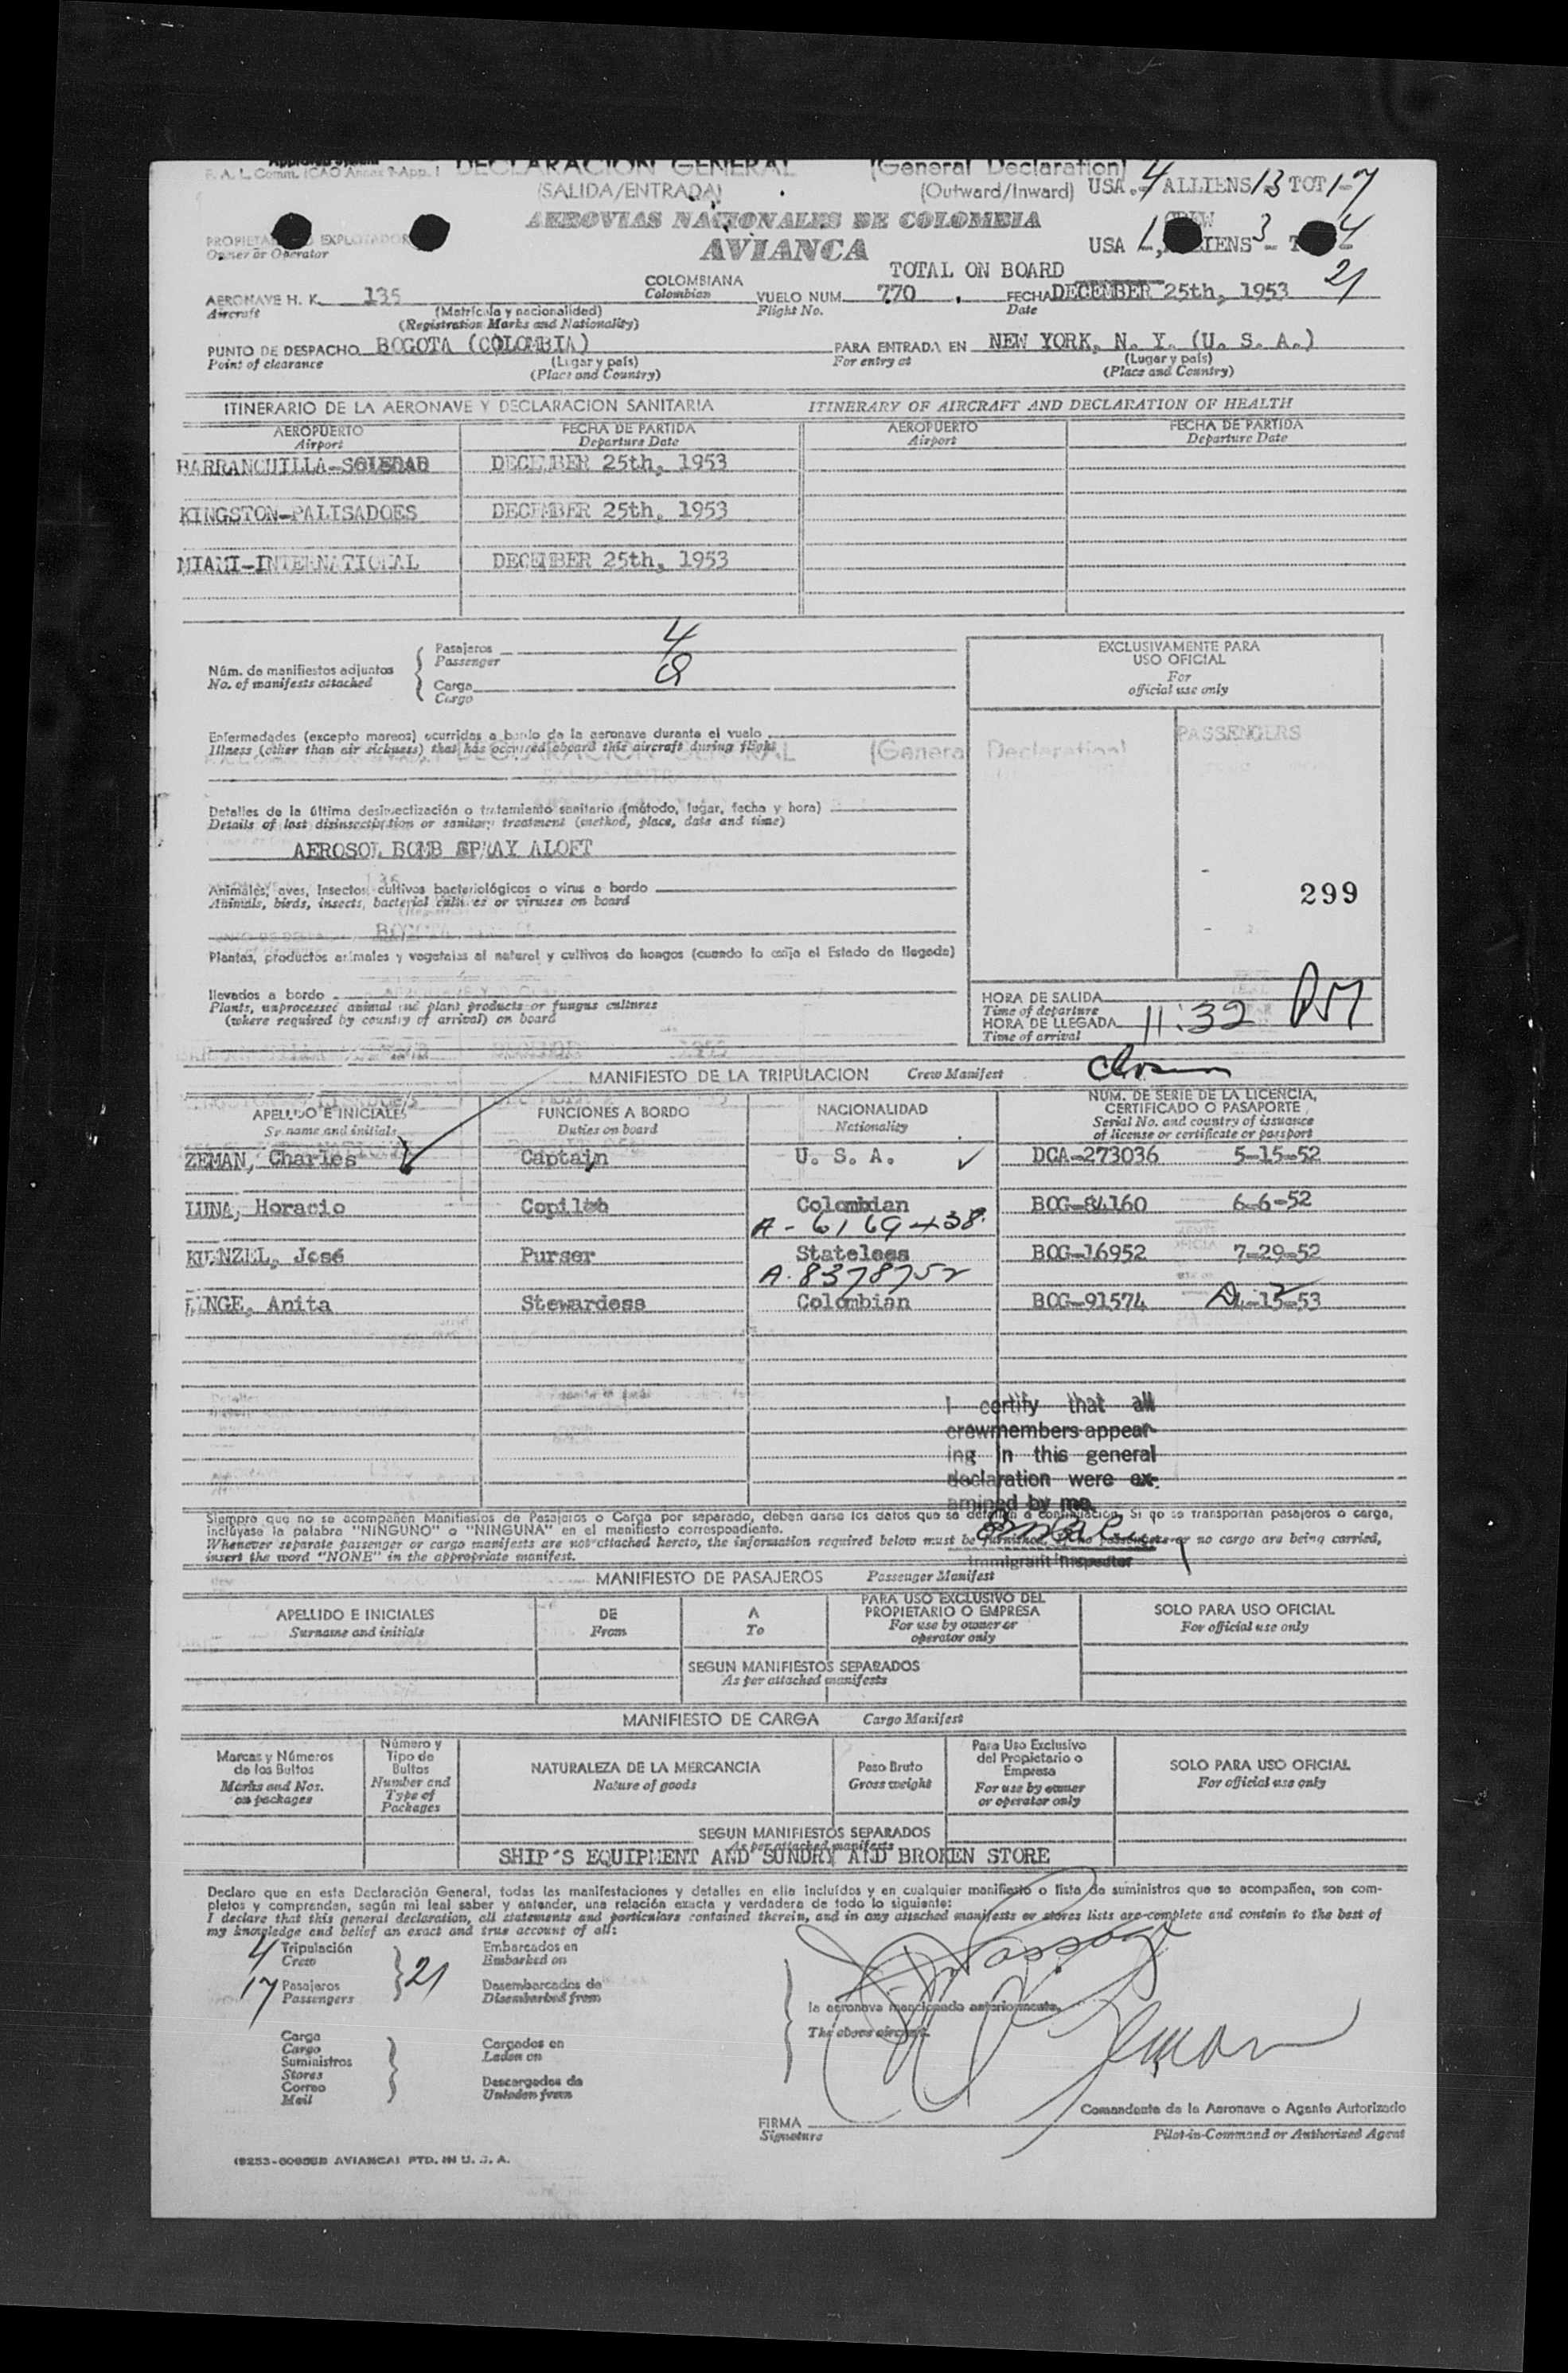 Approved
F. A. L. Comm. (ICAO Annex 9-App. 1 DECLARACION GENERAL (General Declaration)
(SALIDA/ENTRADA) (Outward/Inward) USA.-4 ALLIENS 13 TOT 1-7
AEROVIAS NACIONALES DE COLOMBIA
PROPIETARIO EXPLOTADOR
Owner or Operator AVIANCA USA 1, ALLIENS 3- 4
TOTAL ON BOARD 21
AERONAVE H. K. 135 COLOMBIANA VUELO NUM. 770 . FECHA DECEMBER 25th, 1953
Aircraft Colombian Flight No. Date
(Matrícula y nacionalidad)
(Registration Marks and Nationality)
PUNTO DE DESPACHO BOGOTA (COLOMBIA) PARA ENTRADA EN NEW YORK, N. Y. (U. S. A.)
Point of clearance (Lugar y país) For entry at (Lugar y país)
(Place and Country) (Place and Country)
ITINERARIO DE LA AERONAVE Y DECLARACION SANITARIA ITINERARY OF AIRCRAFT AND DECLARATION OF HEALTH
AEROPUERTO FECHA DE PARTIDA AEROPUERTO FECHA DE PARTIDA
Airport Departure Date Airport Departure Date
BARRANQUILLA-SOLEDAD DECEMBER 25th, 1953
KINGSTON-PALISADOES DECEMBER 25th, 1953
MIAMI-INTERNATIONAL DECEMBER 25th, 1953
Núm. de manifiestos adjuntos
No. of manifests attached
Pasajeros 4
Passenger
Carga
Cargo
EXCLUSIVAMENTE PARA
USO OFICIAL
For
official use only
PASSENGERS
Enfermedades (excepto mareos) ocurridas a bordo de la aeronave durante el vuelo
Illness (other than air sickness) that has occured aboard this aircraft during flight
(General Declaration)
Detalles de la última desinsectización o tratamiento sanitario (método, lugar, fecha y hora)
Details of last disinsectization or sanitary treatment (method, place, date and time)
AEROSOL BOMB SPRAY ALOFT
299
Animales, aves, Insectos, cultivos bacteriológicos o virus a bordo
Animals, birds, insects, bacterial cultures or viruses on board
Plantas, productos animales y vegetales al natural y cultivos de hongos (cuando lo exija el Estado de llegada)
llevados a bordo
Plants, unprocessed animal and plant products or fungus cultures
(where required by country of arrival) on board
HORA DE SALIDA
Time of departure
HORA DE LLEGADA 11:32 PM
Time of arrival
MANIFIESTO DE LA TRIPULACION Crew Manifest
APELLIDO E INICIALES FUNCIONES A BORDO NACIONALIDAD NUM. DE SERIE DE LA LICENCIA,
CERTIFICADO O PASAPORTE
Surname and initials Duties on board Nationality Serial No. and country of issuance
of license or certificate or passport
ZEMAN, Charles Captain U. S. A. DCA-273036 5-15-52
LUNA, Horacio Copilot Colombian BOG-84160 6-6-52
A-6169438
KUENZEL, José Purser Stateless BOG-16952 7-29-52
A-8378752
LINGE, Anita Stewardess Colombian BOG-91574 4-15-53
I certify that all
crewmembers appear-
ing in this general
declaration were ex-
amined by me.
Immigrant Inspector
Siempre que no se acompañen Manifiestos de Pasajeros o Carga por separado, deben darse los datos que se detallan a continuación. Si no se transportan pasajeros o carga,
inclúyase la palabra "NINGUNO" o "NINGUNA" en el manifiesto correspondiente.
Whenever separate passenger or cargo manifests are not attached hereto, the information required below must be furnished. If no passengers or no cargo are being carried,
insert the word "NONE" in the appropriate manifest.
MANIFIESTO DE PASAJEROS Passenger Manifest
APELLIDO E INICIALES DE A PARA USO EXCLUSIVO DEL PROPIETARIO O EMPRESA SOLO PARA USO OFICIAL
Surname and initials From To For use by owner or operator only For official use only
SEGUN MANIFIESTOS SEPARADOS
As per attached manifests
MANIFIESTO DE CARGA Cargo Manifest
Marcas y Números de los Bultos Número y Tipo de Bultos NATURALEZA DE LA MERCANCIA Peso Bruto Para Uso Exclusivo del Propietario o Empresa SOLO PARA USO OFICIAL
Marks and Nos. on packages Number and Type of Packages Nature of goods Gross weight For use by owner or operator only For official use only
SEGUN MANIFIESTOS SEPARADOS
As per attached manifests
SHIP'S EQUIPMENT AND SUNDRY AND BROKEN STORE
Declaro que en esta Declaración General, todas las manifestaciones y detalles en ella incluídos y en cualquier manifiesto o lista de suministros que se acompañen, son com-
pletos y comprenden, según mi leal saber y entender, una relación exacta y verdadera de todo lo siguiente:
I declare that this general declaration, all statements and particulars contained therein, and in any attached manifests or stores lists are complete and contain to the best of
my knowledge and belief an exact and true account of all:
4 Tripulación Embarcados en
Crew Embarked on
17 Pasajeros 21 Desembarcados de
Passengers Disembarked from
la aeronave mencionada anteriormente.
The above aircraft.
Carga
Cargo Cargados en
Suministros Laden on
Stores
Correo Descargados de
Mail Unladen from
Zeman
FIRMA Comandante de la Aeronave o Agente Autorizado
Signature Pilot-in-Command or Authorized Agent
AVIANCA) PTD. IN U. S. A.